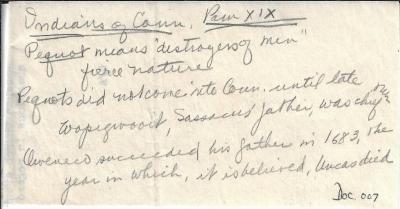 Indians of Conn. Pam XIX
Pequot means "destroyers of men"
fierce nature
Pequots did not come into Conn. until late
Wopigwooit, Sassacus' father, was chief then
Oweneco succeeded his father in 1683, the
year in which, it is believed, Uncas died
Doc. 007